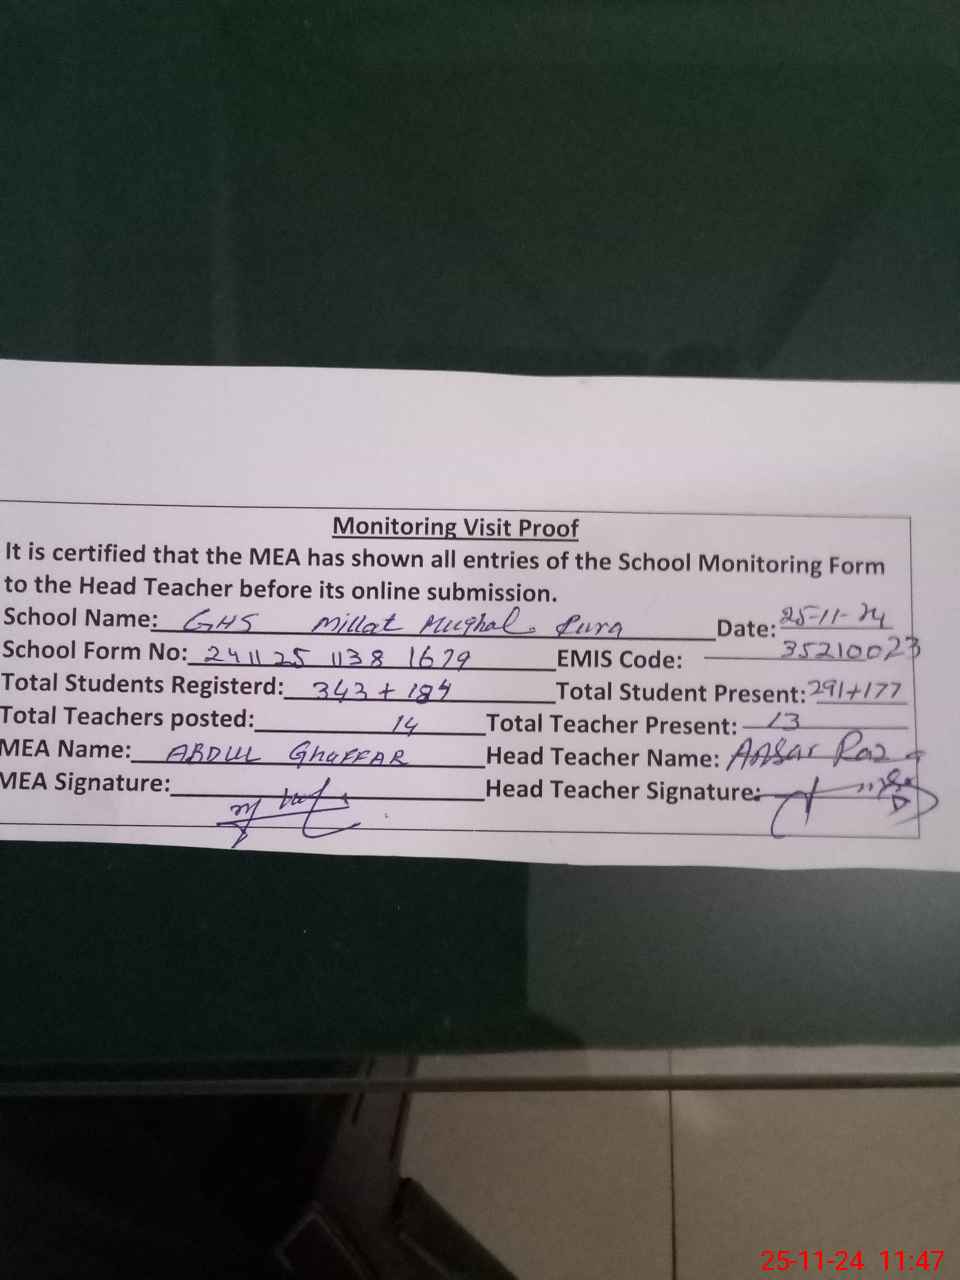 Monitoring Visit Proof
It is certified that the MEA has shown all entries of the School Monitoring Form
to the Head Teacher before its online submission.
School Name: GHS Millat Mughal Pura Date: 25-11-24
School Form No: 241125 1138 1679 EMIS Code: 35210023
Total Students Registerd: 343+184 Total Student Present: 291+177
Total Teachers posted: 14 Total Teacher Present: 13
MEA Name: ABDUL GhaFFAR Head Teacher Name: Ansar Raza
MEA Signature: Head Teacher Signature:
25-11-24 11:47